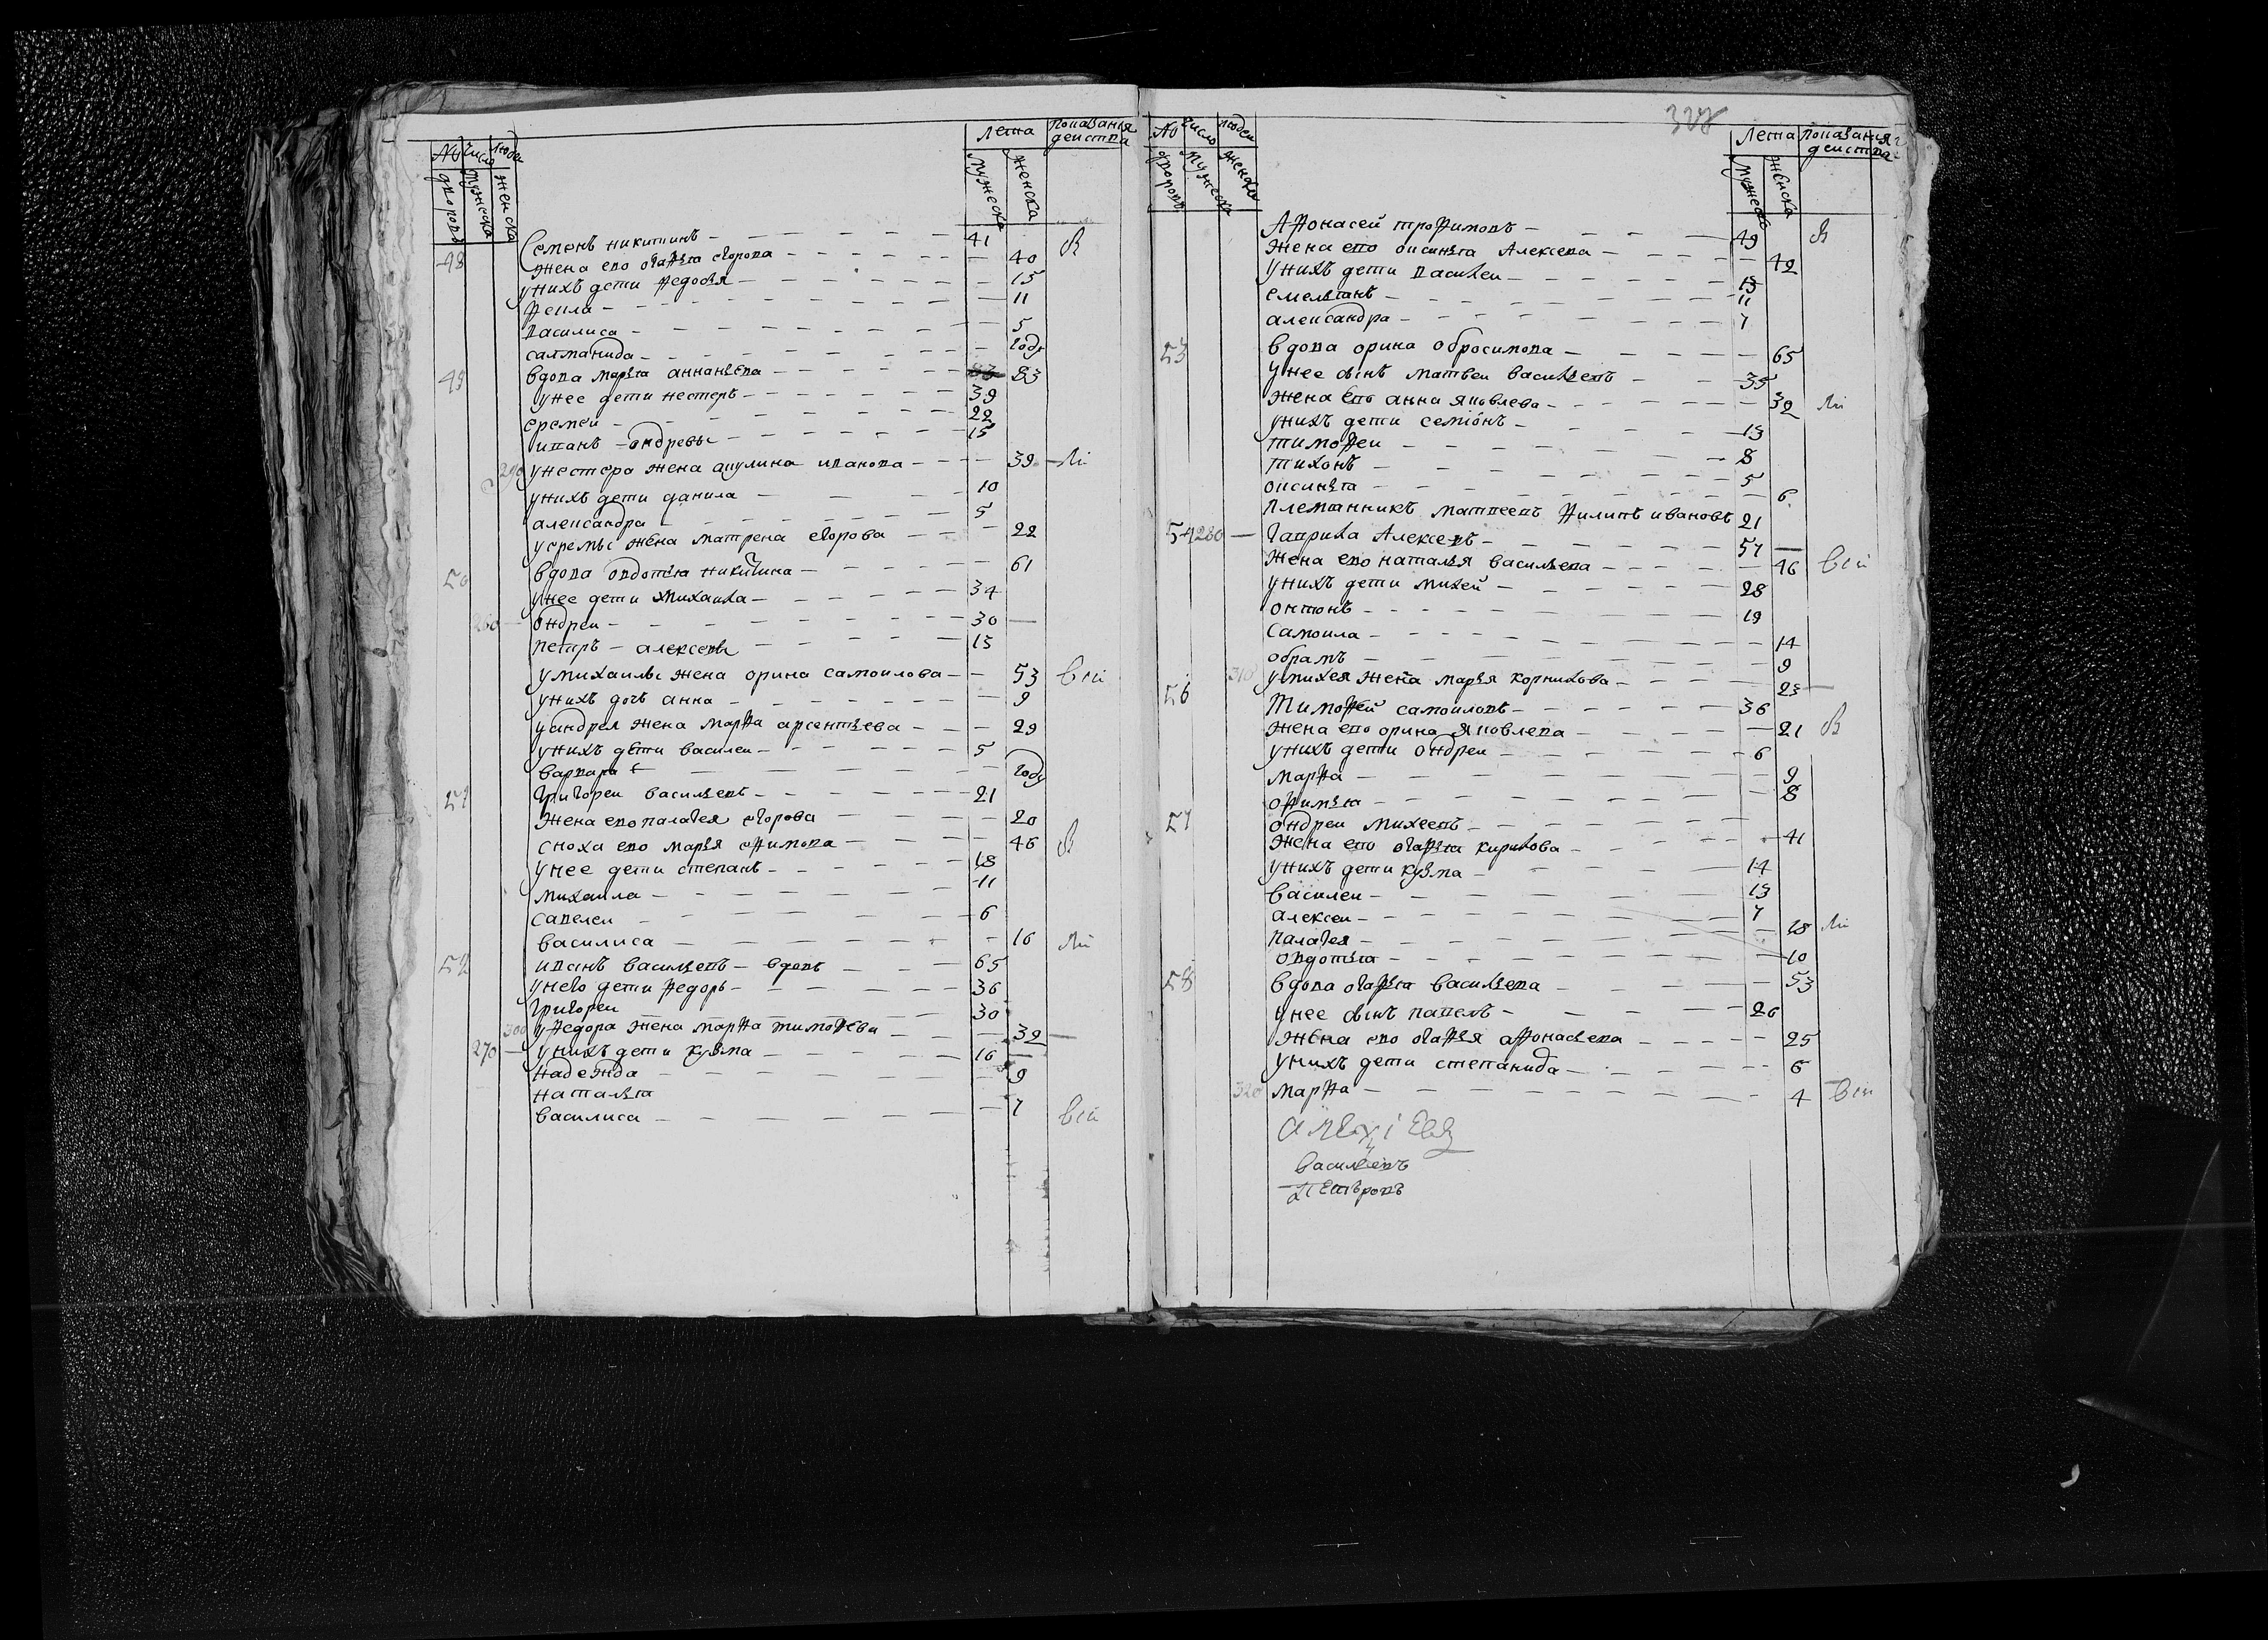 № число людеи Лета показания деиства
дворовъ мужеска женска мужеска женска
48 Семенъ никитинъ 41 В
жена ево огафья егорова 40
у нихъ дети федосья 15
фекла 11
василиса 5
салманида году
49 вдова марья ананьева 83 83
у нее дети нестеръ 39
еремеи 22
иванъ ондревы 15
290 у нестера жена акулина иванова 39 Ли
у нихъ дети данила 10
александра 5
у еремы жена матрена егорова 22
50 вдова овдотья никитина 61
у нее дети михаила 34
260 ондреи 30
петръ алексеевы 13
у михаилы жена орина самоилова 53 всй
у нихъ дочь анна 9
у андрея жена марфа арсентьева 29
у нихъ дети василеи 5
варвара году
51 григореи васильевъ 21
жена ево палагея егорова 20
сноха ево марья ефимова 46 В
у нее дети степанъ 18
михаила 11
савелеи 6
василиса 16 Ли
52 иванъ васильевъ вдовъ 65
у него дети федоръ 36
григореи 30
300 у федора жена марфа тимофева 32
270 у нихъ дети кузма 16
надежда 9
наталья
василиса 7 всй
328
№ число людеи Лета показания деиства
дворовъ мужеска женска мужеска женска
Афонасей трофимовъ 49 В
жена ево оксинья Алексева 42
у нихъ дети василеи 13
емельянъ 11
александра 7
53 вдова орина обросимова 65
у нее сынъ матвеи васильевъ 35
жена ево анна яковлева 32 Ли
у нихъ дети семіонъ 13
тимофеи 8
тихонъ 5
оксинья 6
племянникъ матвеевъ филипъ ивановъ 21
54 280 гаврила Алексевъ 57
жена ево наталья васильева 46 всй
у нихъ дети михей 28
онтонъ 19
самоила 14
обрамъ 9
310 у михея жена марья корнилова 23
56 Тимофей самоиловъ 36
жена ево орина яковлева 21 В
у нихъ дети ондреи 6
марфа 9
офимья 8
57 ондреи михеевъ
жена ево огафья кирилова 41
у нихъ дети кузма 14
василеи 13
алексеи 7
палагея 18 Ли
овдотья 10
58 вдова огафья васильева 53
у нее сынъ павелъ 26
жена ево огафья афонасьева 25
у нихъ дети степанида 6
320 марфа 4 всй
васильевъ
петъровъ